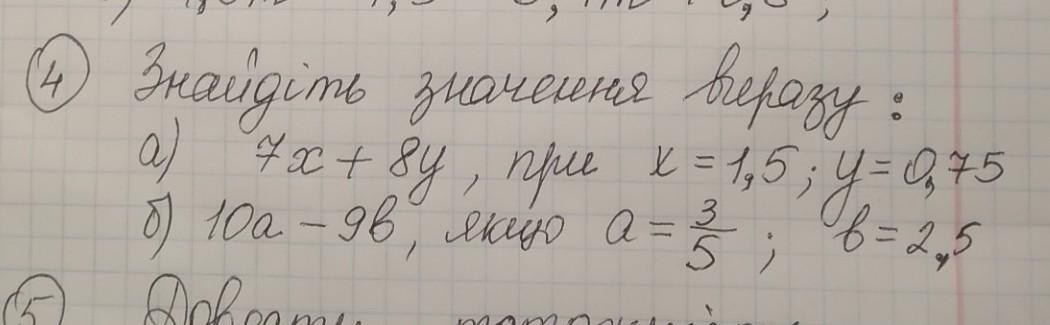 ④ Знайдіть значення виразу:
а) 7x + 8y, при x = 1,5; y = 0,75
б) 10a - 9b, якщо a = 3/5; b = 2,5
⑤